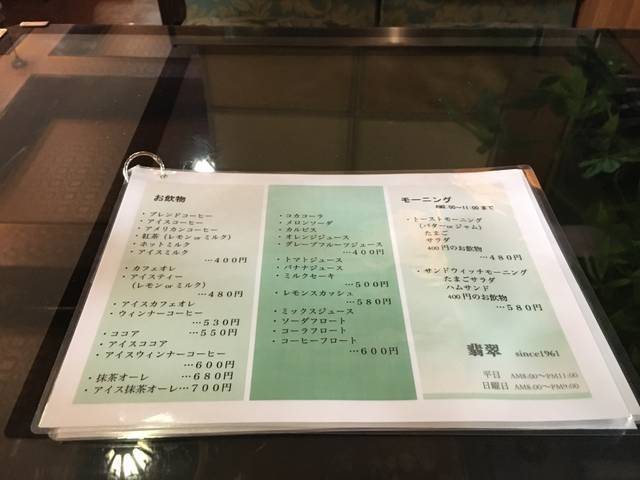 お飲物
・ブレンドコーヒー
・アイスコーヒー
・アメリカンコーヒー
・紅茶(レモン or ミルク)
・ホットミルク
・アイスミルク
…400円
・カフェオレ
・アイスティー
(レモン or ミルク)
…480円
・アイスカフェオレ
・ウィンナーコーヒー
…530円
・ココア …550円
・アイスココア
・アイスウィンナーコーヒー
…600円
・抹茶オーレ …680円
・アイス抹茶オーレ…700円
・コカコーラ
・メロンソーダ
・カルピス
・オレンジジュース
・グレープフルーツジュース
…400円
・トマトジュース
・バナナジュース
・ミルクセーキ
…500円
・レモンスカッシュ
…580円
・ミックスジュース
・ソーダフロート
・コーラフロート
・コーヒーフロート
…600円
モーニング
～11:00まで
・トーストモーニング
(バター or ジャム)
たまご
サラダ
400円のお飲物
…480円
・サンドウィッチモーニング
たまごサラダ
ハムサンド
400円のお飲物
…580円
翡翠 since1961
平日 AM8:00～PM11:00
日曜日 AM8:00～PM9:00